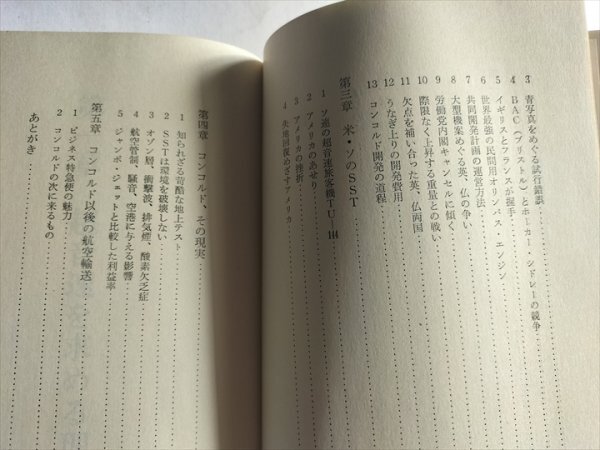 3 青写真をめぐる試行錯誤
4 BAC(ブリストル)とホーカー シドレーの競争
5 イギリスとフランスが握手
6 世界最強の民間用オリンパス・エンジン
7 共同開発計画の運営方法
8 大型機案めぐる英、仏の争い
9 労働党内閣キャンセルに傾く
10 際限なく上昇する重量との戦い
11 欠点を補い合った英、仏両国
12 うなぎ上りの開発費用
13 コンコルド開発の道程
第三章 米・ソのSST
1 ソ連の超音速旅客機TU—144
2 アメリカのあせり
3 アメリカの挫折
4 失地回復めざすアメリカ
第四章 コンコルド、その現実
1 知られざる苛酷な地上テスト
2 SSTは環境を破壊しない
3 オゾン層、衝撃波、排気煙、酸素欠乏症
4 航空管制、騒音、空港に与える影響
5 ジャンボ・ジェットと比較した利益率
第五章 コンコルド以後の航空輸送
1 ビジネス特急便の魅力
2 コンコルドの次に来るもの
あとがき